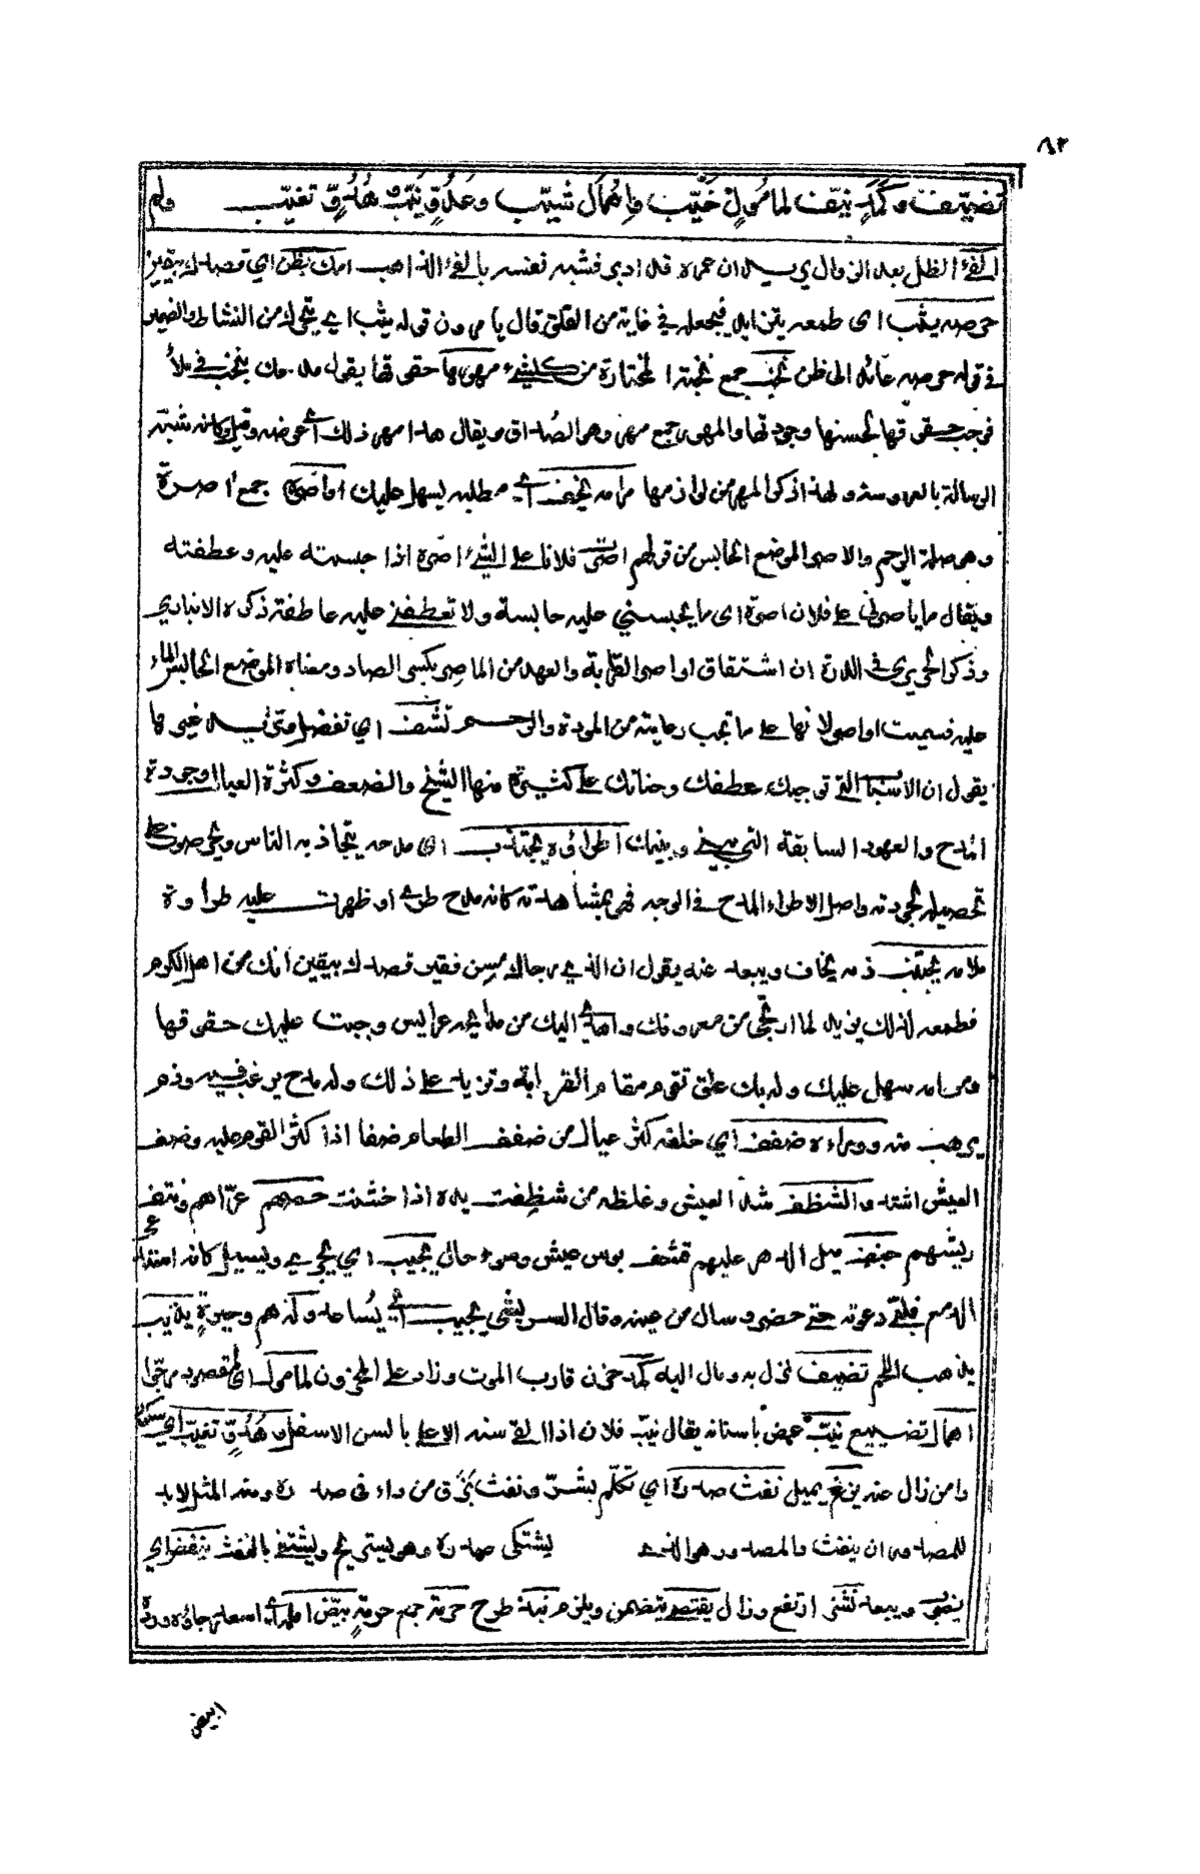 ٨٣
تضيّف وكمد نيّف لمامول خيّب واهمال شيّب وعدوّ نيّب وهدوّ تغيّب ولم
الفيء الظل بعد الزوال يريد ان عمره قد ادبر فشبه نفسه بالفيء الذاهب امك بظن اي قصدك بيقين
حرصه يثب اي طمعه يتزايد فيجعله في غاية من القلق قال يامرون قوله يثب اي يتحرك من النشاط والضمير
في قوله حرصه عائد الى ظن نخب جمع نخبة المختارة من كل شيء مهورها حقوقها يقول مدحك بنخب في ملأ
فوجب حقوقها لحسنها وجودتها والمهور جمع مهر وهو الصداق ويقال هذا مهر ذلك اي عوضه وقيل وكانه شبّه
الرسالة بالعروسة ولهذا ذكر المهر من لوازمها مرامه يخف اي مطلبه يسهل عليك اواصره جمع اصرة
وهو صلة الرحم والاصر الموضع الحابس من قولهم اصرت فلانا على الشيء اصره اذا حبسته عليه وعطفته
ويقال ما ياصرني على فلان اصرة اي ما يحبسني عليه حابسة ولا تعطفني عليه عاطفة ذكره الانباري
وذكر الحريري في الدرة ان اشتقاق اواصر القرابة والعهد من الماصر بكسر الصاد ومعناه الموضع الحابس للماء
عليه فسميت اواصر لانها على ما تجب رعايته من المودة والرحم تشف اي تفضل وتزيد غيرها
يقول ان الاسباب التي توجبك عطفك وحنانك على كثيرة منها الشيخ والضعف وكثرة العيال وجودة
المدح والعهود السابقة التي بيني وبينك اطراؤه يجتذب اي مدحه يتجاذبه الناس ويحرصون على
تحصيله لجودته واصل الاطراء المدح في الوجه فهو بمشاهدته كانه مدح طري اوظهرت عليه طراوة
ملامه يجتنب ذمه يخاف ويبعد عنه يقول ان الذي رجاك مسن فقير قصدك بيقين انك من اهل الكرم
فطمعه لذلك يزيد لما ارتجى من معروفك واهدى اليك من مدايحه عرايس وجبت عليك حقوقها
ومرامه سهل عليك وله بك علق تقوم مقام القرابة وتزيد على ذلك وله مدح يرغب فيه وذم
يرهب منه ووراءه ضفف اي خلفه كثر عيال من ضفف الطعام ضففا اذا كثر القوم عليه وضفف
العيش اشتد والشظف شدة العيش وغلظه من شظفت يده اذا خشنت حصهم عرّاهم ونتف
ريشهم جنف ميل الدهر عليهم قشف بوس عيش وسوء حال يجيب اي يجري ويسيل كانه استدعى
الدمع فلبّى دعوته حتى حضر وسال من عينه وقال الشريشي يجيب اي يُساعد وله هم وحيرة يذيب
يذهب اللحم تضيف نزل به ومال اليه كمد حزن قارب الموت وزاد على الحزون لمامول اي لمقصود مرجّوا
اهمال تضييع نيّب عض باسنانه يقال نيّب فلان اذا التقى سنه الاعلى بالسن الاسفل وهُدوّ تغيّب اي سكون
وامن زال عنه يزغ يميل نفث صدره اي تكلّم بشرّ ونفث بزق من داء في صدره ومنه المثل لابد
للمصدور ان ينفث والمصدور هو الذي يشتكي صدره وهو يستريح ويشتفي بالنفث ينفض اي
ينفى ويبعد نشز ارتفع وزال يقتضي يتضمن ويلزم نبذ طرح حرمة جمع حرمة بيّض املي اي اسعد رجاؤه ورده
ابيض